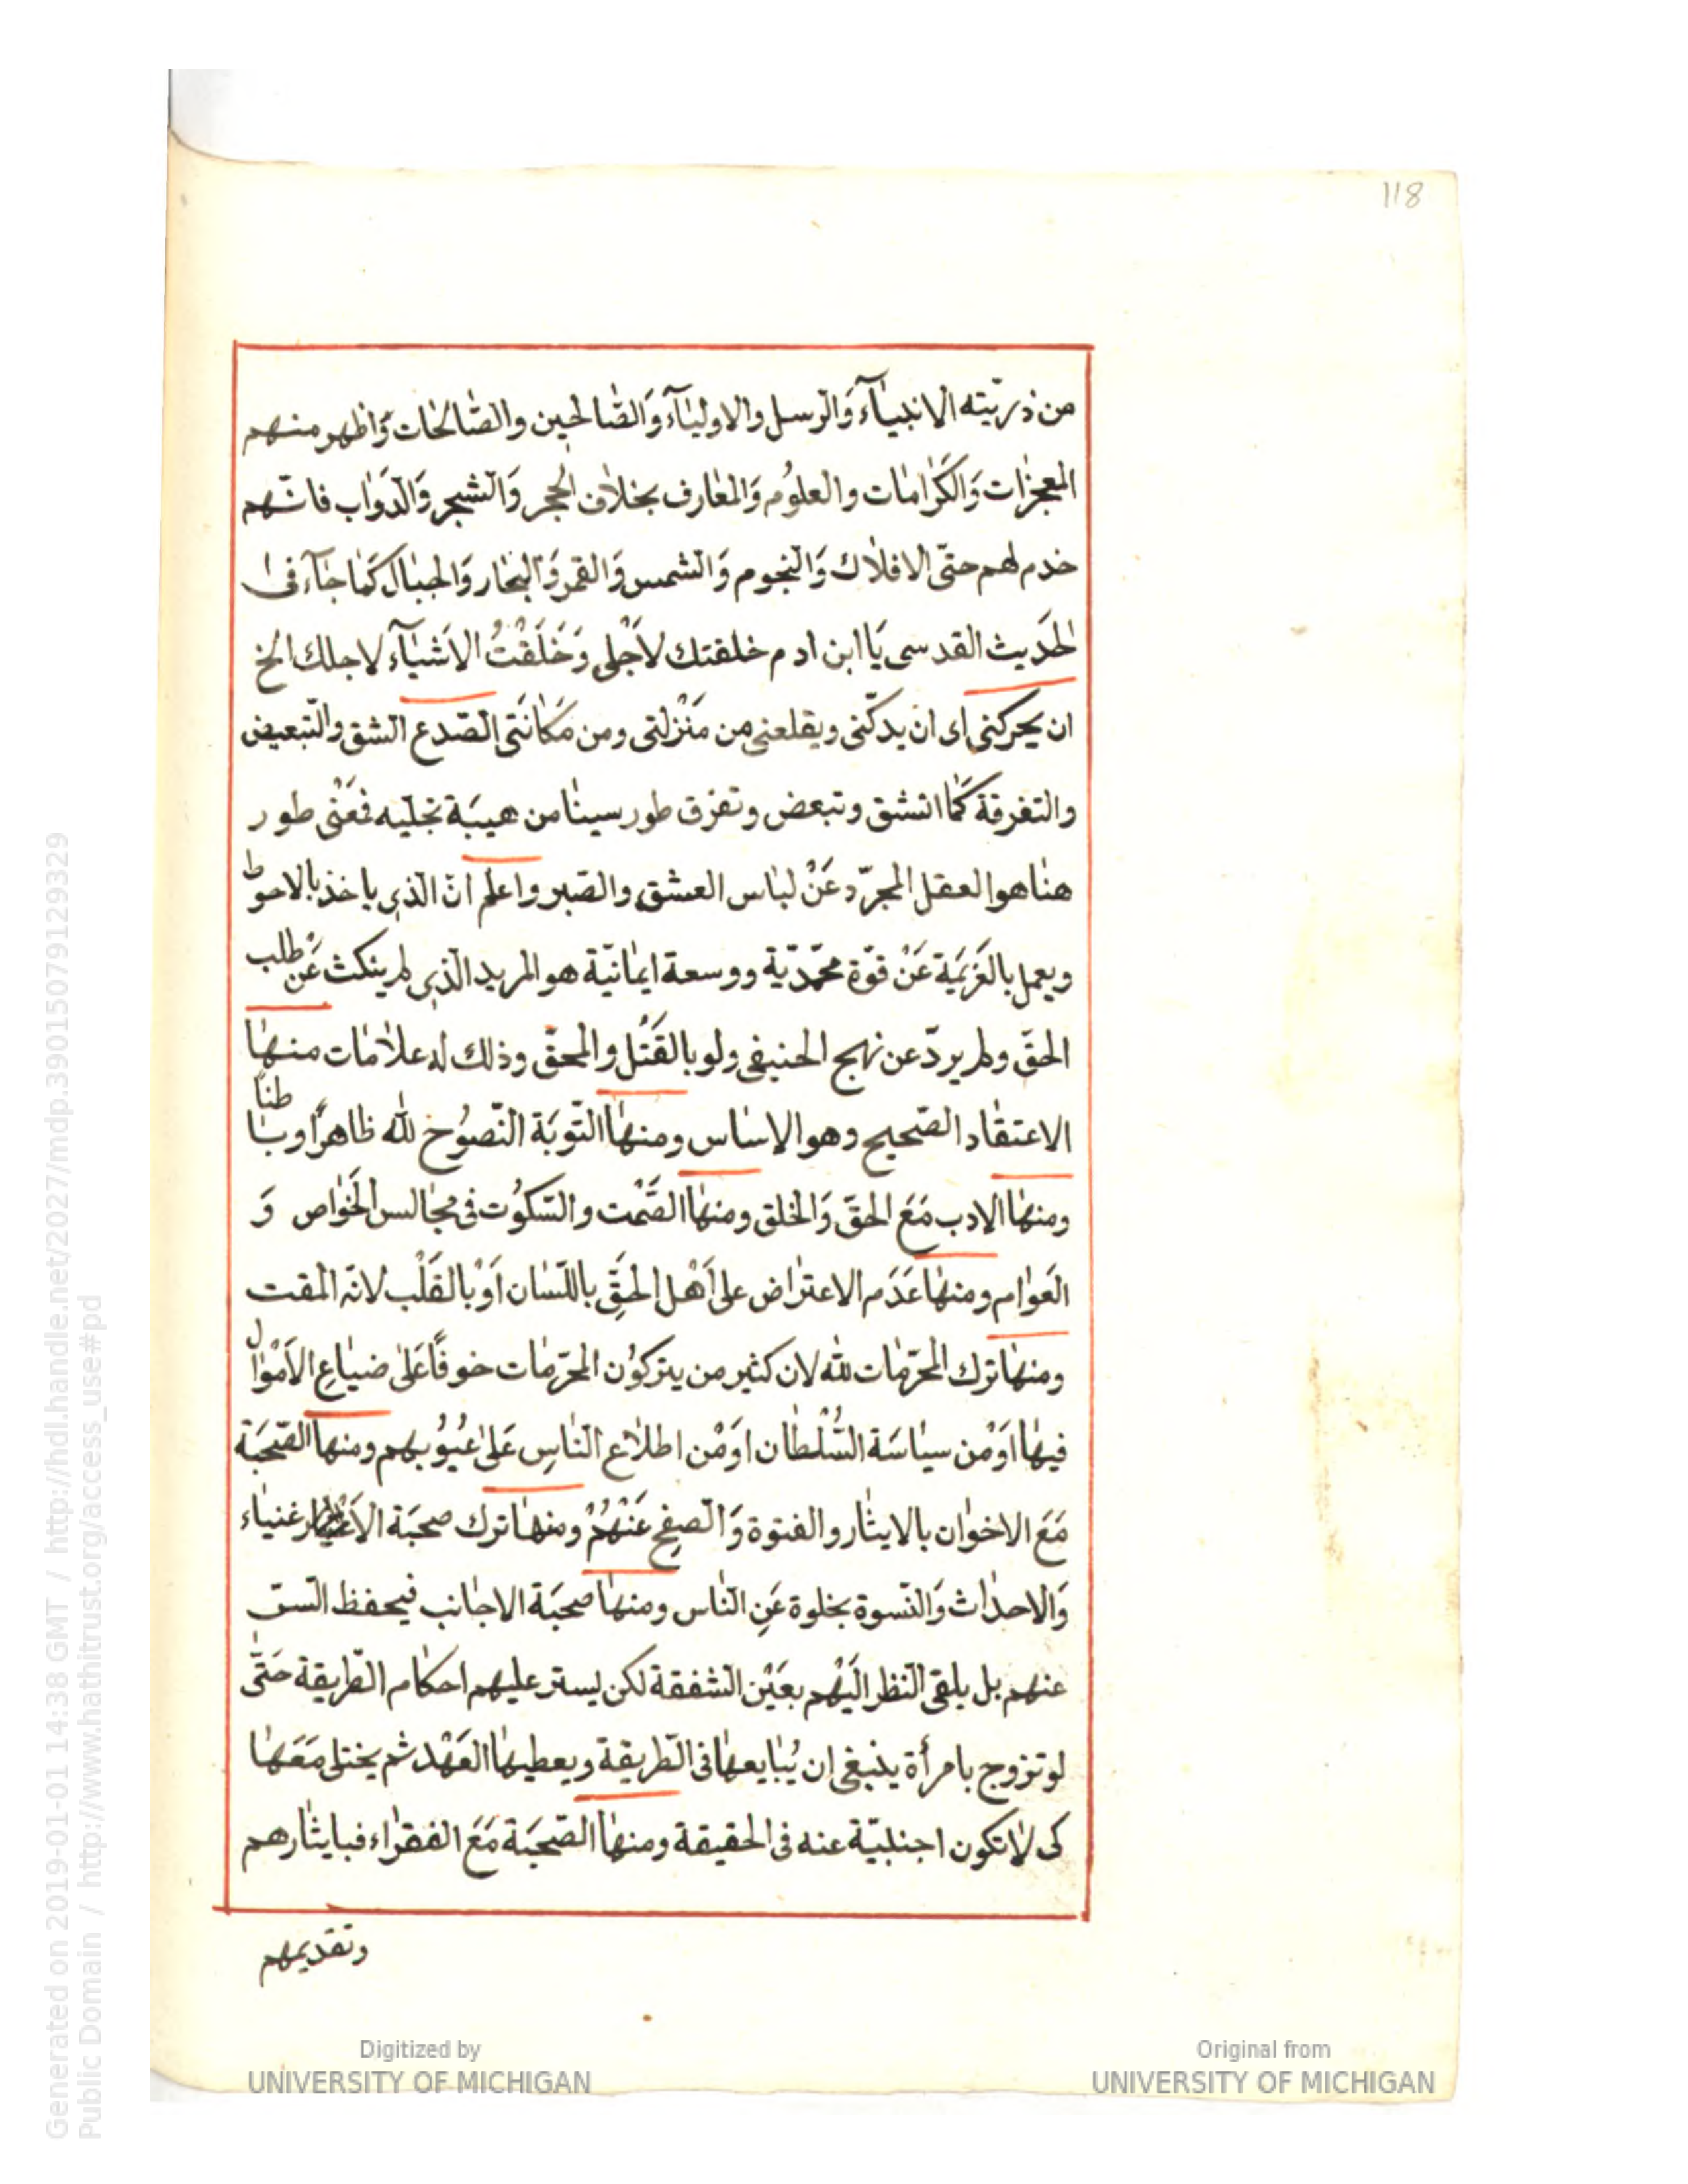 118
من ذريّته الانبيآء وَالرّسل والاوليَآء وَالصّالحين والصّالحات وَاظهر منهم
المعجزات وَالكَرامات والعلوُم وَالمعارف بخلاف الحُجر وَالشّجر وَالدّوَاب فانّهم
خدم لهم حتّى الافلاك وَالنّجوم وَالشّمس وَالقمر وَالبحَار وَالجبَال كَما جَآء فى
الحَديث القدسى يَا ابن ادم خلقتك لاَجْلى وَخَلَقْتُ الاَشيَآء لاجلك الخ
ان يحركنى اى ان يدكّنى ويقلعنى من مَنْزلتى ومن مَكَانَتى الصّدع الشق والتّبعيض
والتفرقة كَما انشق وتبعض وتفرق طور سينا من هيبَة تجليّه فَعَنْى طور
هنا هو العقل المجرّد عَنْ لبَاس العشق والصّبر واعلم انّ الذى ياخذ بالاحوط
ويعمل بالعَزيمَة عَنْ قوّة محمّديّة ووسعة ايمانيّة هو المريد الّذى لم ينكث عَنْ طلب
الحقّ ولم يردّ عن نهج الحنيفى ولو بالقَتْل والمحقّ وذلك له علامات منها
الاعتقاد الصّحيح وهو الاساس ومنها التّوبَة النّصوُح للّه ظاهرًا وباطنًا
ومنها الادب مَعَ الحقّ وَالخلق ومنها الصّمْت والسّكوُت فى مجالس الخَواص وَ
العَوام ومنها عَدَم الاعتراض على اَهْل الحَقّ باللّسَان اَوْ بالقَلْب لانّه المقت
ومنها ترك المحرّمات للّه لان كثير من يتركوُن المحرّمات خوفًا عَلىٰ ضيَاع الاَمْوال
فيها اَوْمن سيَاسَة السُّلْطان اوَمْن اطلاع النّاس عَلىٰ عُيوُبهم ومنها الصّحبَة
مَعَ الاخوان بالايثار والفتوة وَالصّفح عَنْهُمْ ومنها ترك صحبَة الاغنياء
وَالاحداث وَالنّسوة بخلوة عَنِ النّاس ومنها صحبَة الاجانب فيحفظ السّر
عنهم بل يلقى النّظر الَيْهم بعَيْن الشّفقة لكن ليستر عليهم احكام الطّريقة حَتّى
لو تزوج بامرأة ينبغى ان يُبَايعها فى الطّريقة ويعطيها العَهْد ثم يختلى مَعَهَا
كى لا تكون اجنبيّة عنه فى الحقيقة ومنها الصّحبَة مَعَ الفقراء فبايثارهم
وتقديمهم
Generated on 2019-01-01 14:38 GMT / http://hdl.handle.net/2027/mdp.39015079129329
Public Domain / http://www.hathitrust.org/access_use#pd
Digitized by
UNIVERSITY OF MICHIGAN
Original from
UNIVERSITY OF MICHIGAN